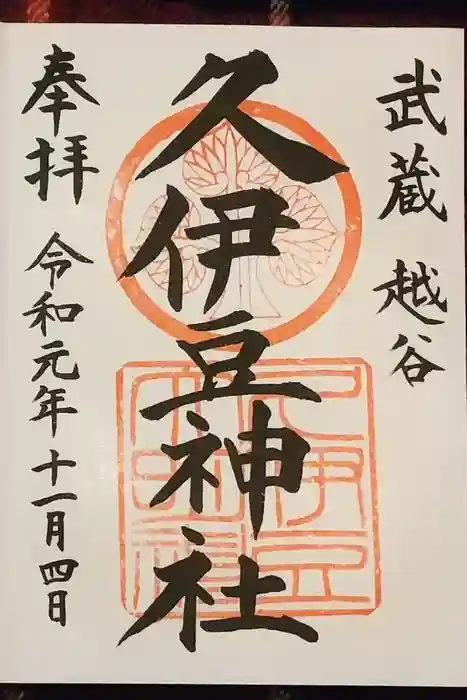 武蔵 越谷
久伊豆神社
奉拝 令和元年 十一月四日
久伊豆
神社